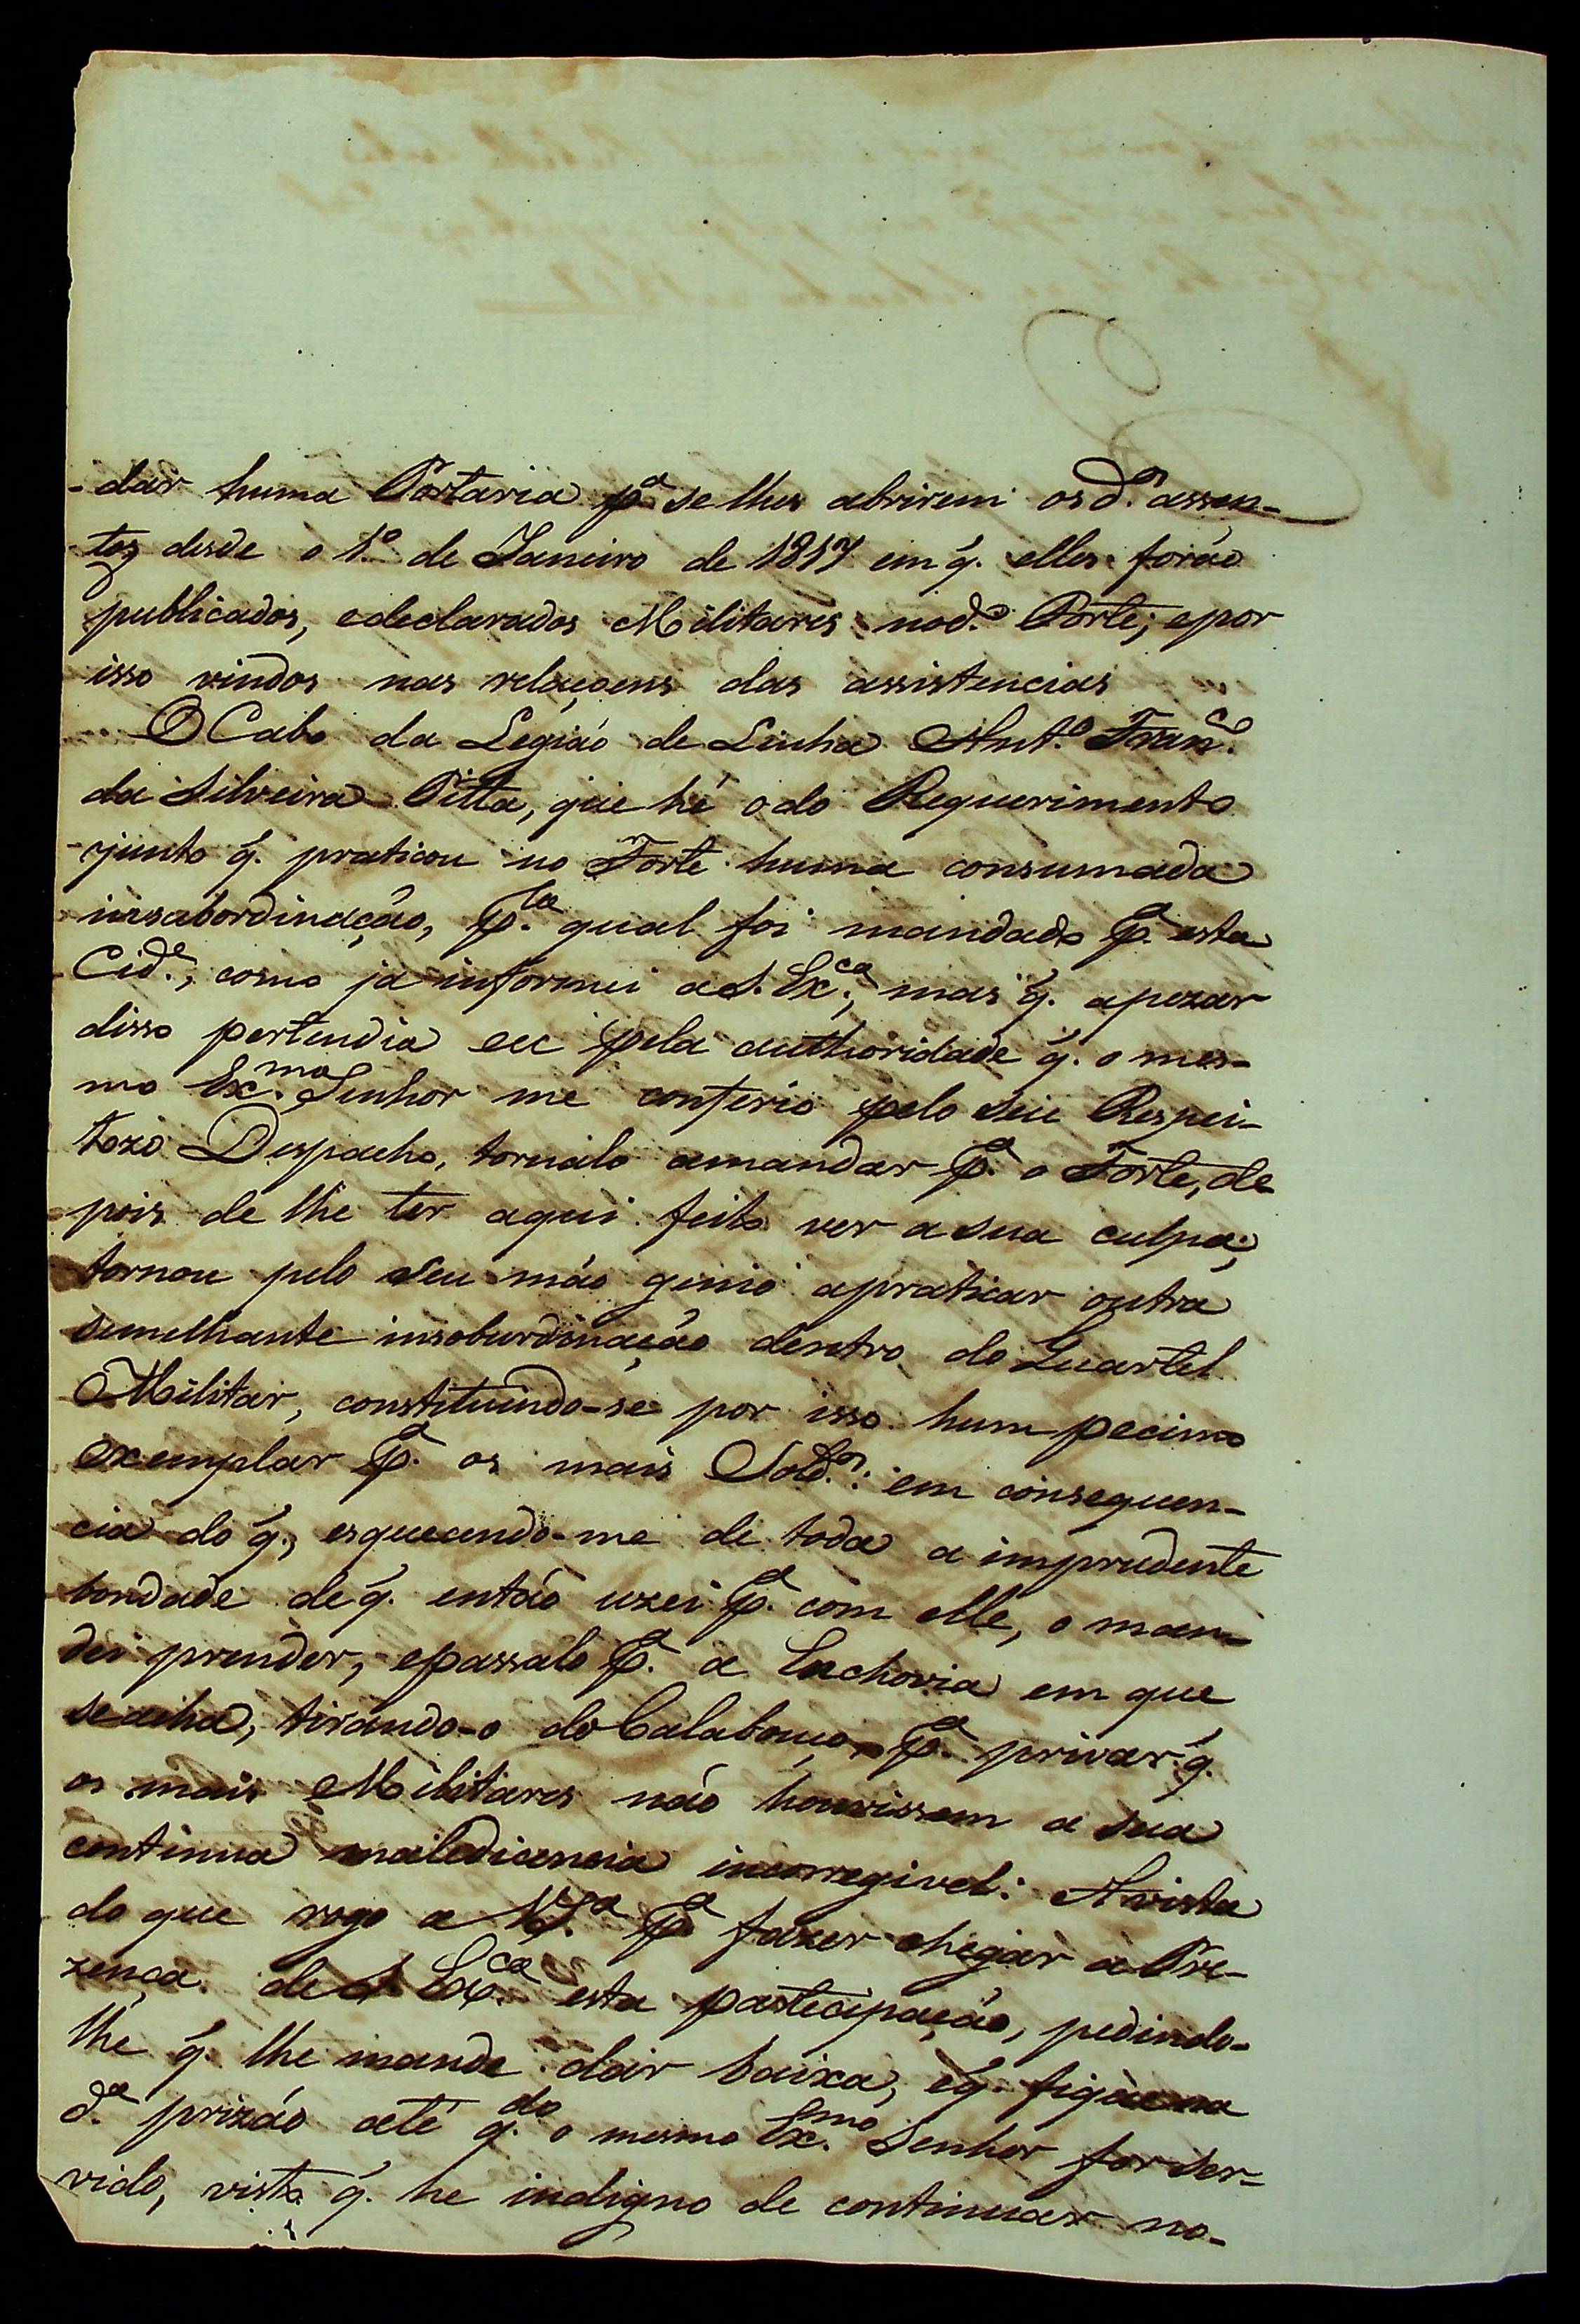 -dar huma Portaria p.ª se lhes abrirem os d.os assen-
tos desde o 1.º de Janeiro de 1817 em q. elles forão
publicados, e declarados Militares no d.º Forte; e por
isso vindos nas relaçoens das assistencias
O Cabo da Legião de Linha Ant.º Fran.co
da Silveira Pitta, que hé o do Requerimento
junto q. praticou no Forte huma consumada
insabordinação, p.la qual foi mandado p.ª esta
Cid.e, como já informei a S. Ex.ca, mas q. apezar
disso pertendia eu pela authoridade q. o mes-
mo Ex.mo Senhor me conferio pelo seu Respei-
tozo Despacho, tornalo amandar p.ª o Forte, de
pois de lhe ter aqui feito ver a sua culpa;
tornou pelo seu máo genio apraticar outra
semelhante insoburdinação dentro do Quartel
Militar, constituindo-se por isso hum pecimo
exemplar p.ª os mais Sold.os: em consequen-
cia do q., esquecendo-me de toda a imprudente
bondade de q. então uzei p.ª com elle, o man-
dei prender, e passalo p.ª a Enchovia em que
se acha, tirando-o do Calabouço, p.ª privar q.
os mais Militares não houvissem a sua
continua maledicencia incorregivel: Avista
do que rogo a V. S.ª p.ª fazer chegar á Pre-
zença de S. Ex.ca esta partecipação, pedindo-
lhe q. lhe mande dar baixa, e q. fique na
d.ª prizão até q.do o mesmo Ex.mo Senhor for ser-
vido, visto q. he indigno de continuar no-